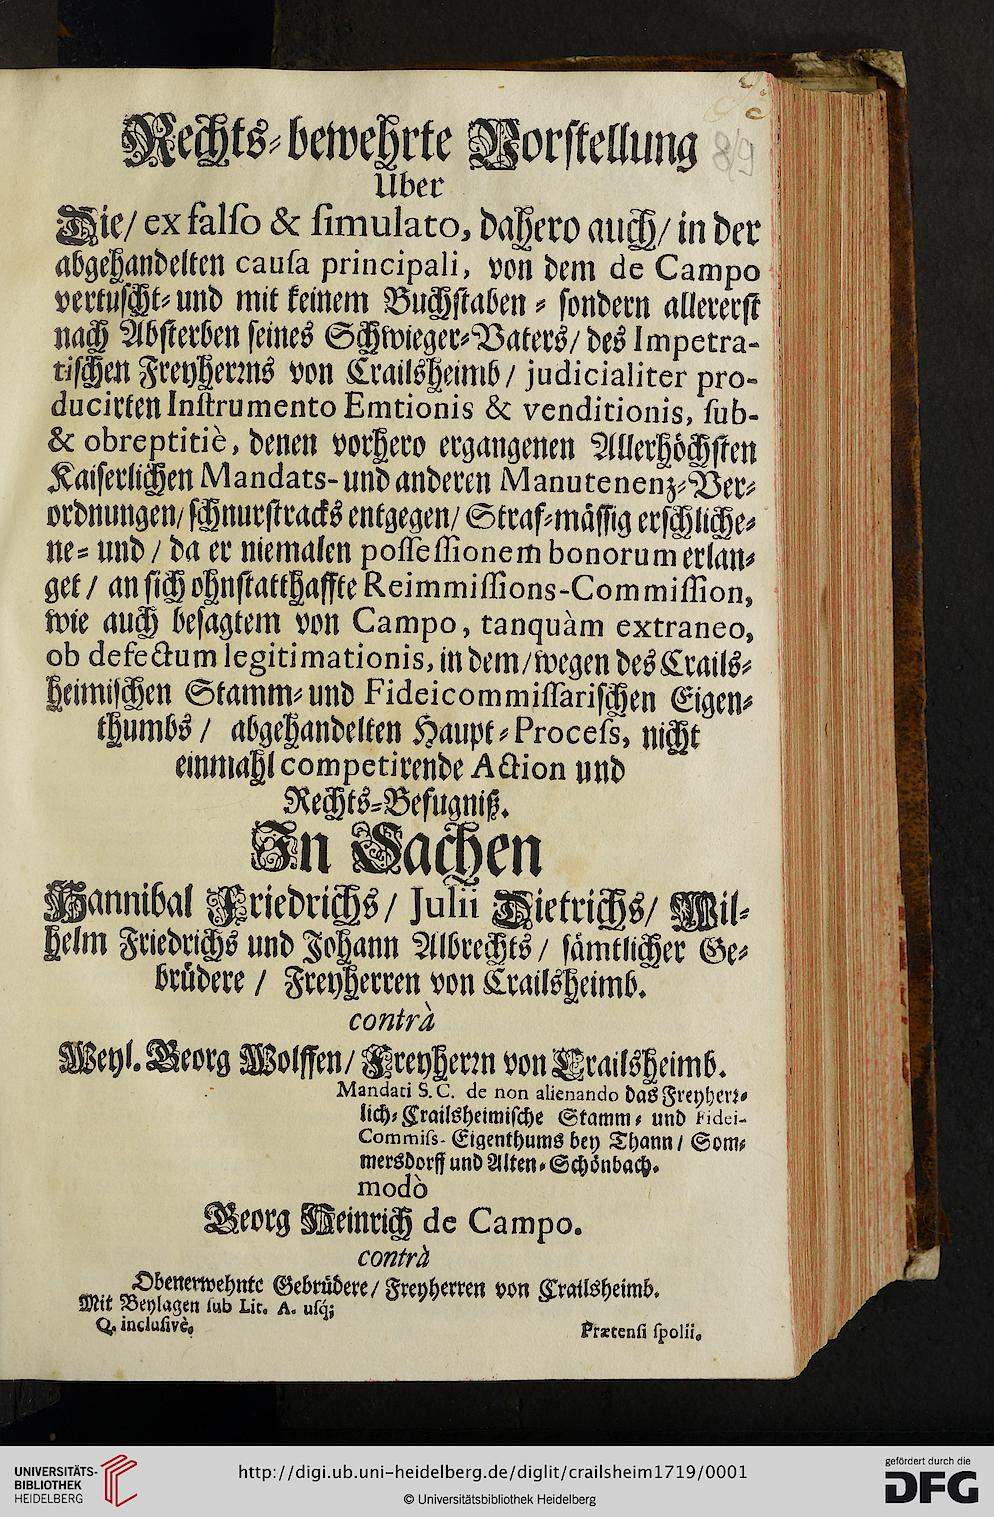 Rechts-bewehrte Vorstellung
Uber
Die/ ex falso & simulato, dahero auch/ in der
abgehandelten causa principali, von dem de Campo
vertuscht- und mit keinem Buchstaben - sondern allererst
nach Absterben seines Schwieger-Vaters/ des Impetra-
tischen Freyherrns von Crailsheimb / judicialiter pro-
ducirten Instrumento Emtionis & venditionis, sub-
& obreptitiè, denen vorhero ergangenen Allerhöchsten
Kaiserlichen Mandats- und anderen Manutenenz-Ver-
ordnungen/ schnurstracks entgegen/ Straf-mässig erschliche-
ne- und / da er niemalen possessionem bonorum erlan-
get / an sich ohnstatthaffte Reimmissions-Commission,
wie auch besagtem von Campo, tanquàm extraneo,
ob defectum legitimationis, in dem/ wegen des Crails-
heimischen Stamm- und Fideicommissarischen Eigen-
thumbs / abgehandelten Haupt-Process, nicht
einmahl competirende Action und
Rechts-Befugniß.
In Sachen
Hannibal Friedrichs/ Julii Dietrichs/ Wil-
helm Friedrichs und Johann Albrechts / sämtlicher Ge-
brüdere / Freyherren von Crailsheimb.
contrà
Weyl. Georg Wolffen/ Freyherrn von Crailsheimb.
Mandati S. C. de non alienando das Freyherr-
lich-Crailsheimische Stamm- und Fidei-
Commiss-Eigenthums bey Thann / Som-
mersdorff und Alten-Schönbach.
modò
Georg Heinrich de Campo.
contrà
Obenerwehnte Gebrüdere/ Freyherren von Crailsheimb.
Mit Beylagen sub Lit. A. usq;
Q. inclusivè.
Prætensi spolii.
UNIVERSITÄTS-
BIBLIOTHEK
HEIDELBERG
http://digi.ub.uni-heidelberg.de/diglit/crailsheim1719/0001
© Universitätsbibliothek Heidelberg
gefördert durch die
DFG